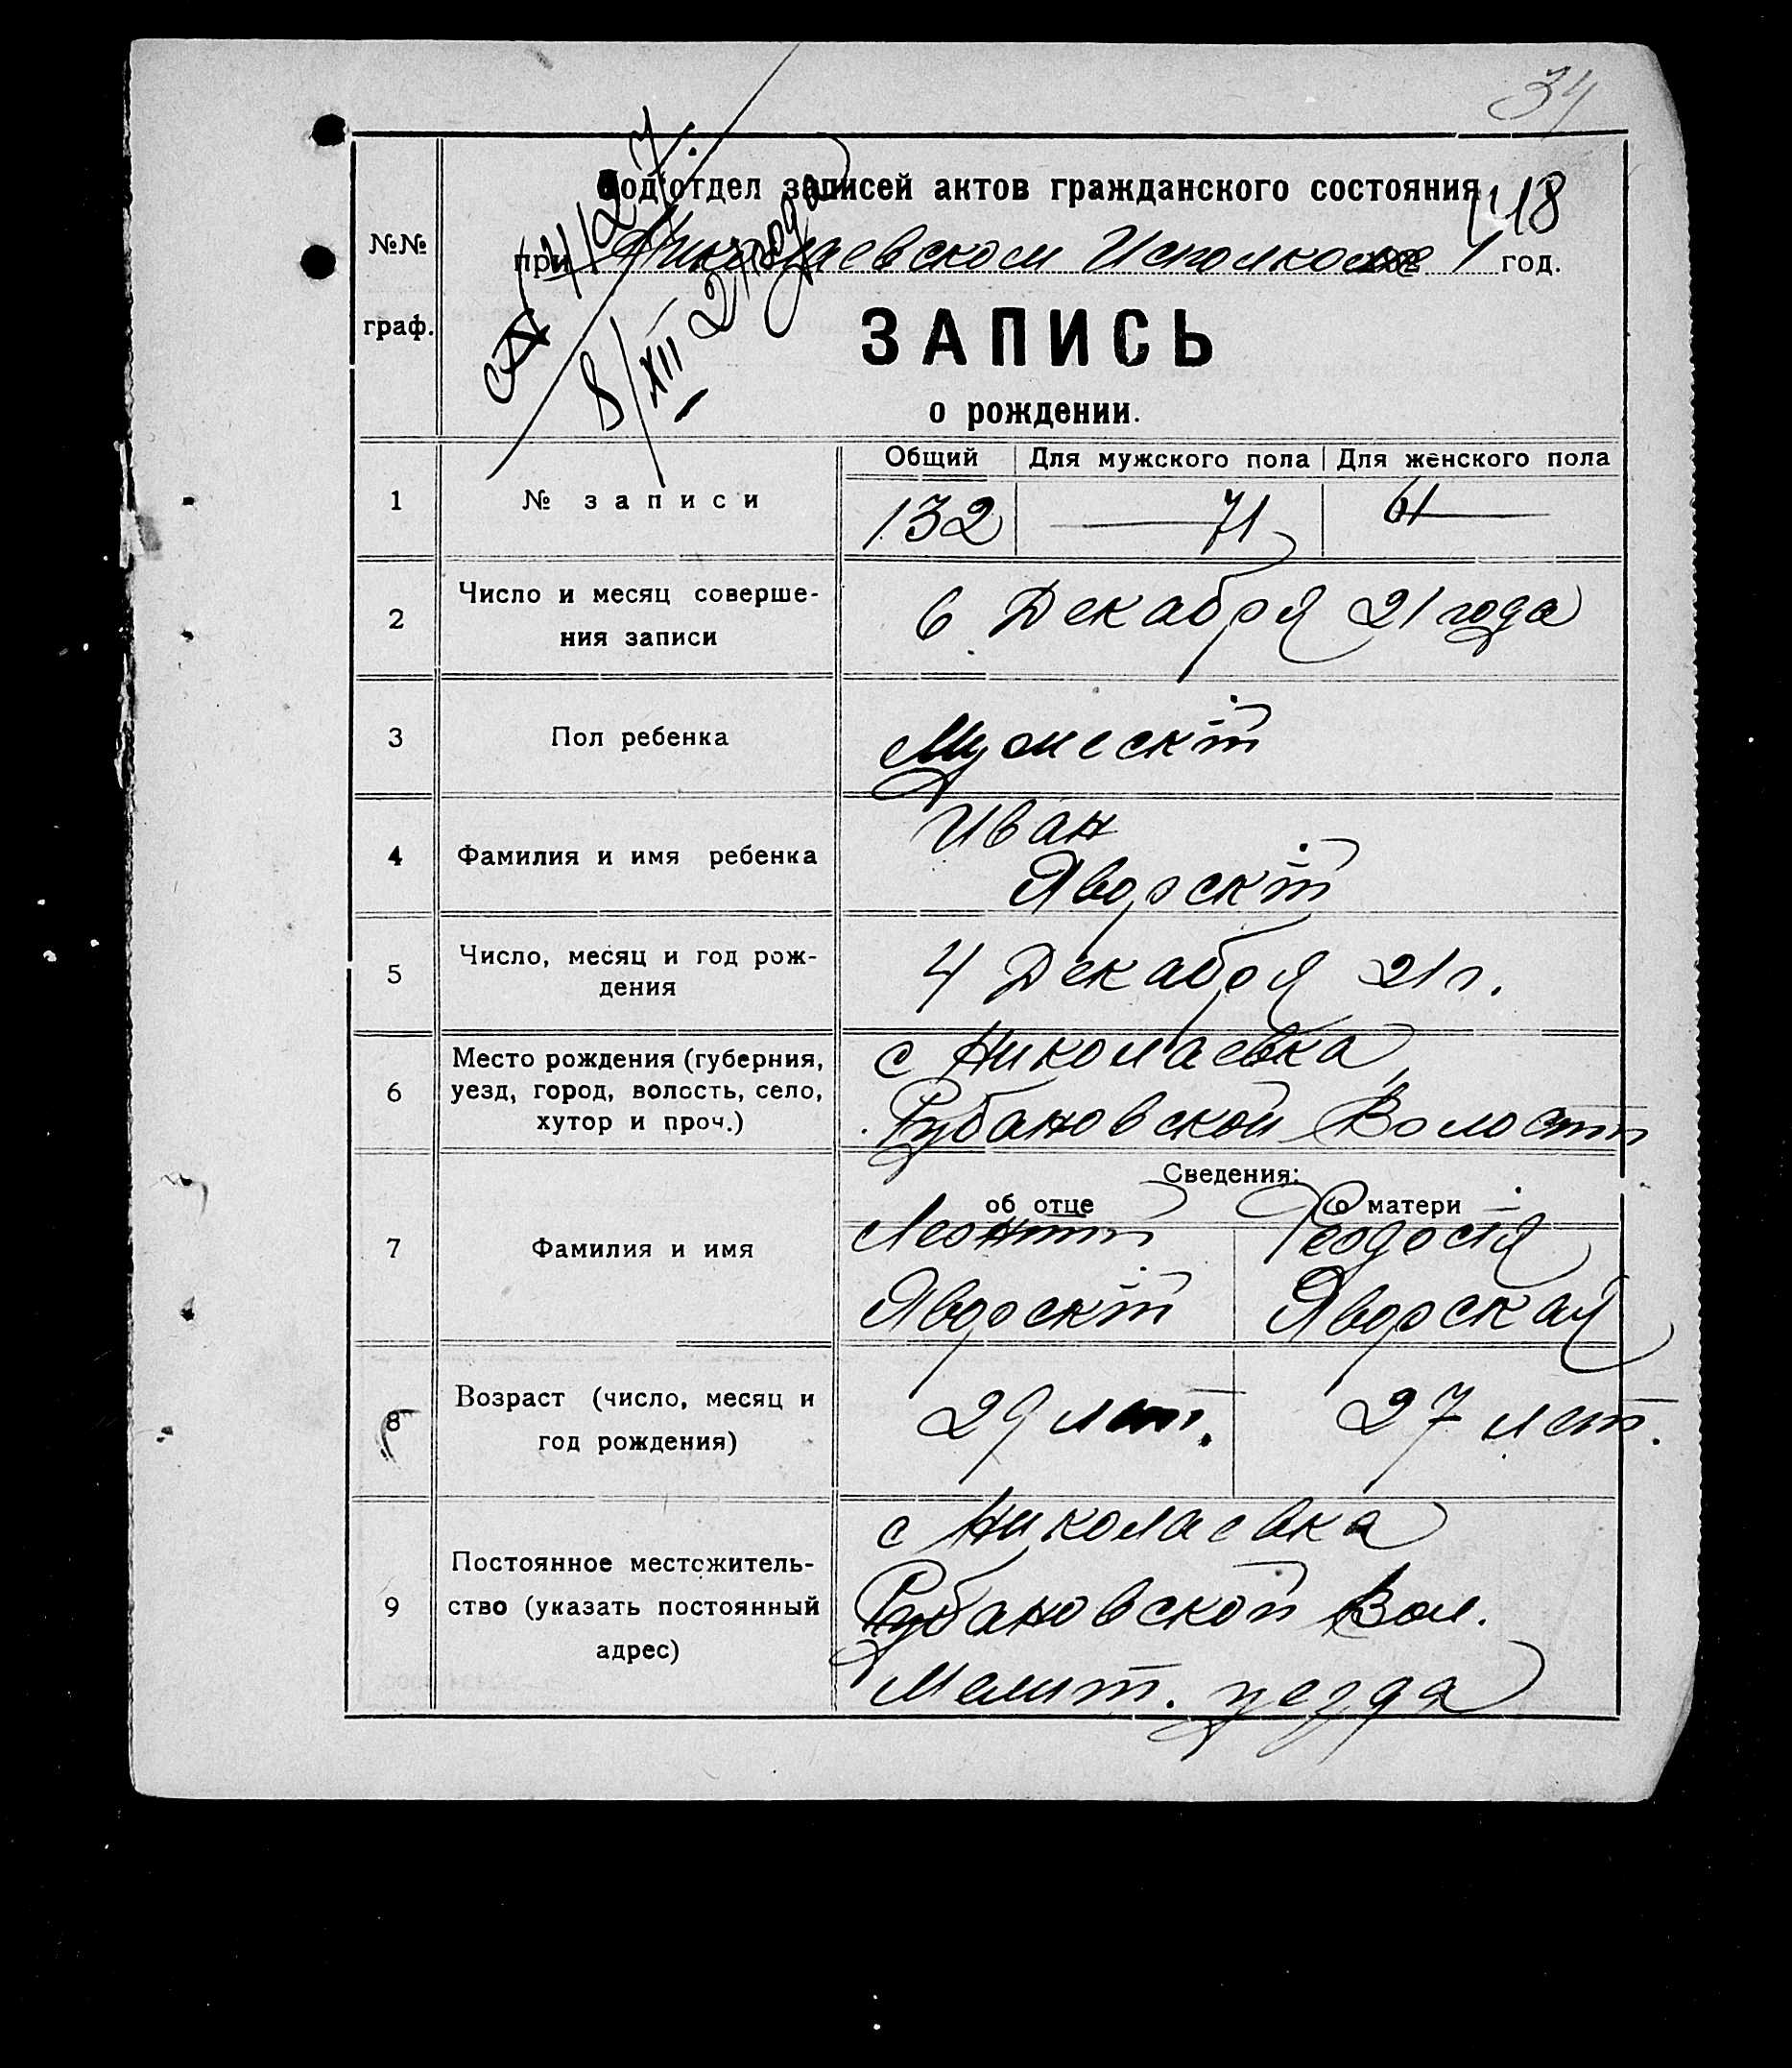 34
Подотдел записей актов гражданского состояния
при Николаевском Исполкоме 1921 год.
№№
граф.
ЗАПИСЬ
о рождении.
8/XII 21 года
Общий Для мужского пола Для женского пола
1 № записи 132 71 61
2 Число и месяц соверше-
ния записи
6 Декабря 21 года
3 Пол ребенка Мужескій
4 Фамилия и имя ребенка
Иван
Яворскій
5 Число, месяц и год рож-
дения
4 Декабря 21 г.
6 Место рождения (губерния,
уезд, город, волость, село,
хутор и проч.)
с Николаевка
Рубановской Волости
Сведения:
об отце о матери
7 Фамилия и имя
Леонтій Феодосія
Яворскій Яворская
8 Возраст (число, месяц и
год рождения)
29 лет. 27 лет.
9 Постоянное местожитель-
ство (указать постоянный
адрес)
с Николаевка
Рубановской Вол.
Мелит. уезда